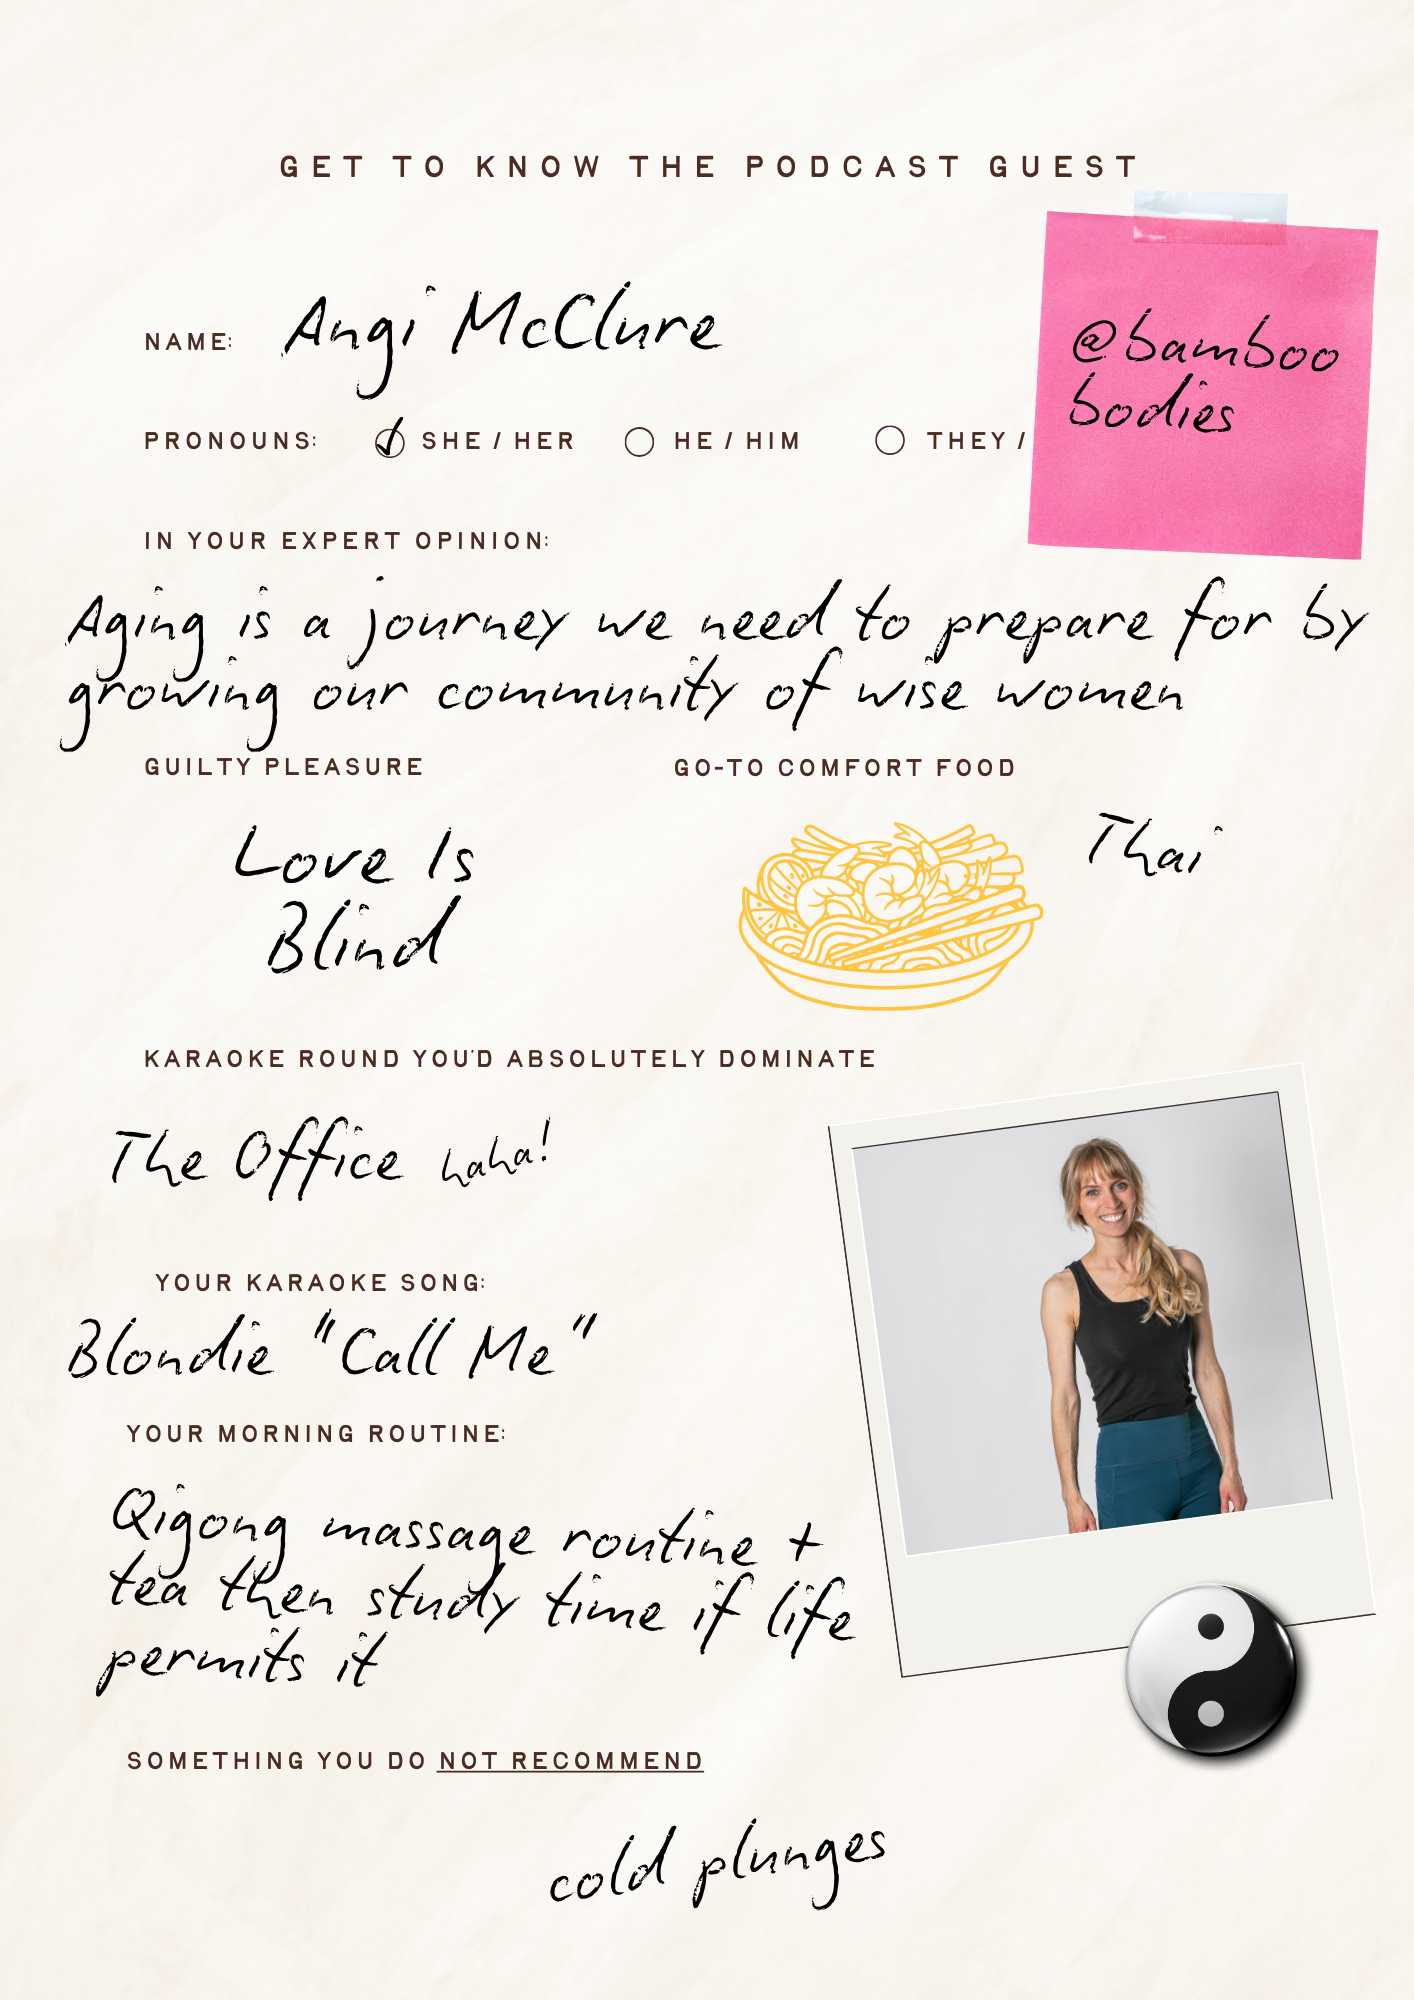 GET TO KNOW THE PODCAST GUEST
NAME: Angi McClure
@bamboo
bodies
PRONOUNS: SHE / HER HE / HIM THEY /
IN YOUR EXPERT OPINION:
Aging is a journey we need to prepare for by
growing our community of wise women
GUILTY PLEASURE
Love Is
Blind
GO-TO COMFORT FOOD
Thai
KARAOKE ROUND YOU'D ABSOLUTELY DOMINATE
The Office haha!
YOUR KARAOKE SONG:
Blondie "Call Me"
YOUR MORNING ROUTINE:
Qigong massage routine +
tea then study time if life
permits it
SOMETHING YOU DO NOT RECOMMEND
cold plunges